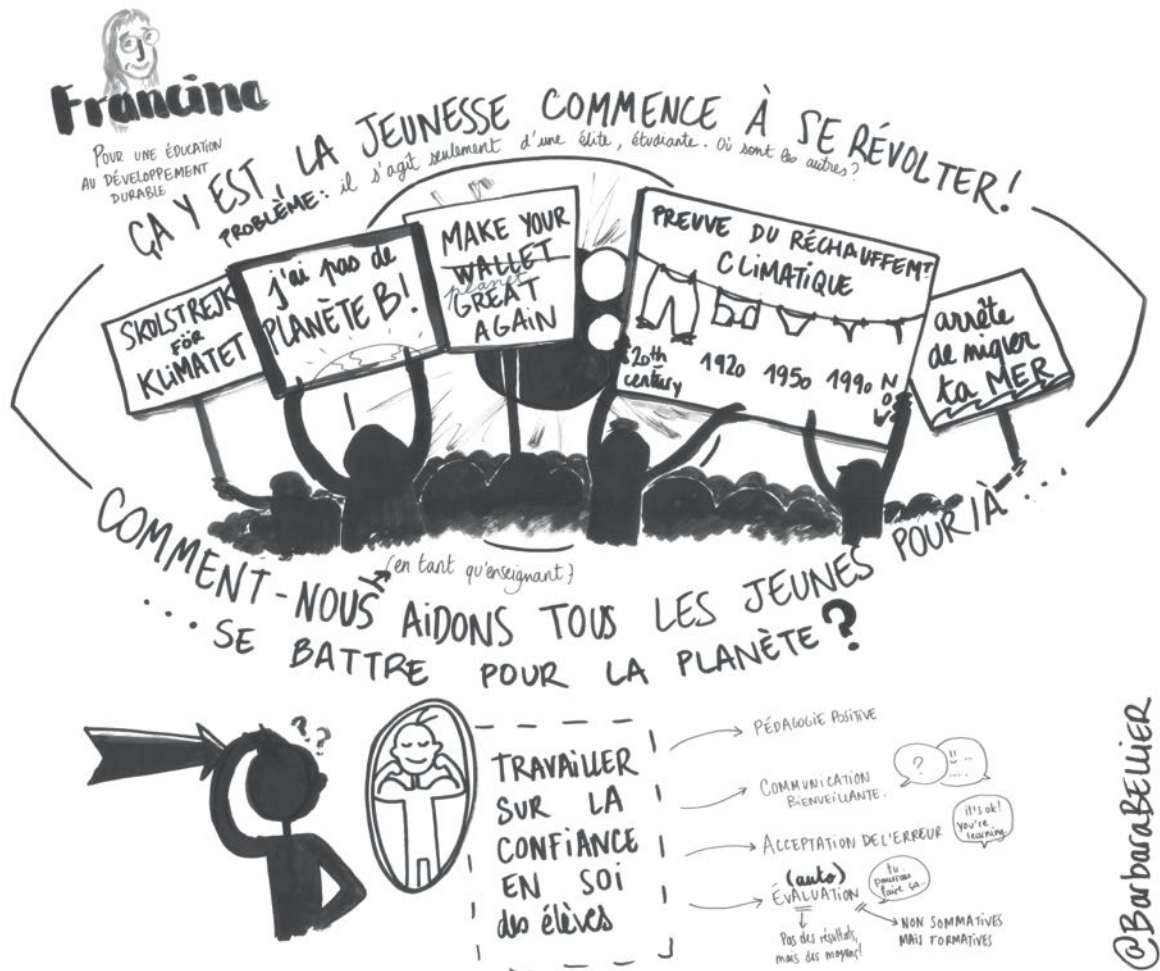 Francine
POUR UNE ÉDUCATION
AU DÉVELOPPEMENT
DURABLE
ÇA Y EST, LA JEUNESSE COMMENCE À SE RÉVOLTER!
PROBLÈME: il s'agit seulement d'une élite, étudiante. Où sont les autres?
SKOLSTREJK
FÖR
KLIMATET
j'ai pas de
PLANÈTE B!
MAKE YOUR
WALLET
planet
GREAT
AGAIN
PREUVE DU RÉCHAUFFEMT
CLIMATIQUE
20th
century
1920
1950
1990
NOW
arrête
de migrer
ta MER
COMMENT-NOUS AIDONS TOUS LES JEUNES POUR/À...
(en tant qu'enseignant)
...SE BATTRE POUR LA PLANÈTE?
???
TRAVAILLER
SUR LA
CONFIANCE
EN SOI
des élèves
PÉDAGOGIE POSITIVE
COMMUNICATION
BIENVEILLANTE.
?
!!
....
ACCEPTATION DE L'ERREUR
it's ok!
you're
learning
(auto)
ÉVALUATION
tu
pourras
faire ça..
Pas des résultats,
mais des moyens!
NON SOMMATIVES
MAIS FORMATIVES
@BarbaraBEllIER